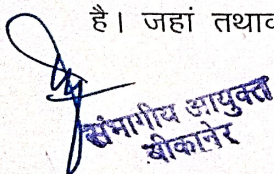 है। जहां तथाव
संभागीय आयुक्त
बीकानेर